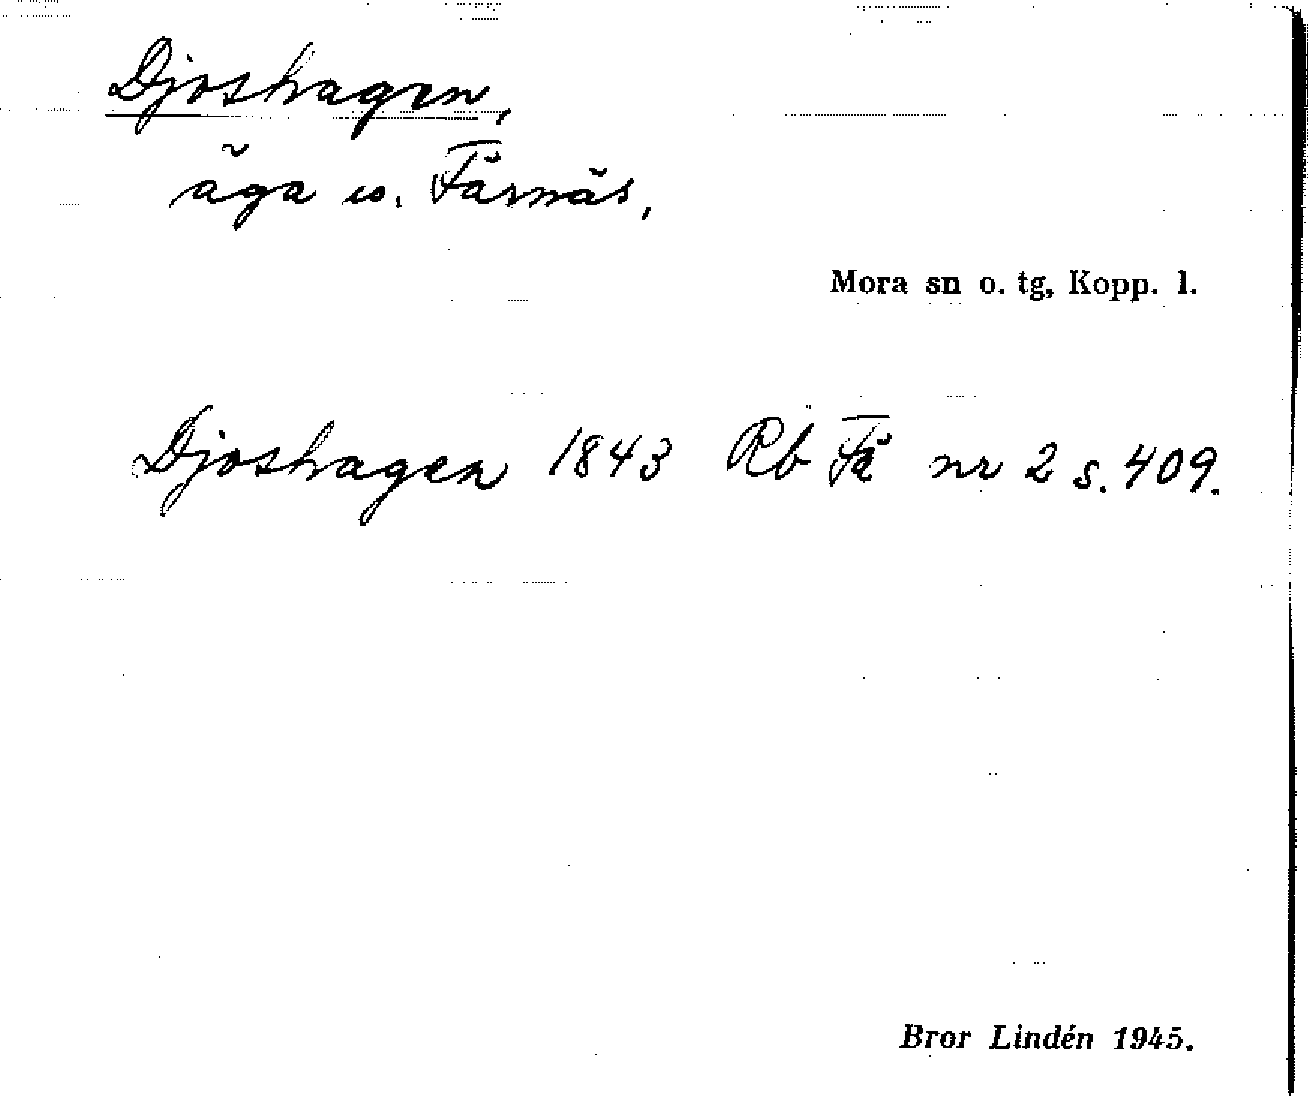 Djoshagen,
äga u. Färnäs,
Mora sn o. tg, Kopp. l.
Djoshagen 1843 Rb Fä nr 2 s. 409.
Bror Lindén 1945.